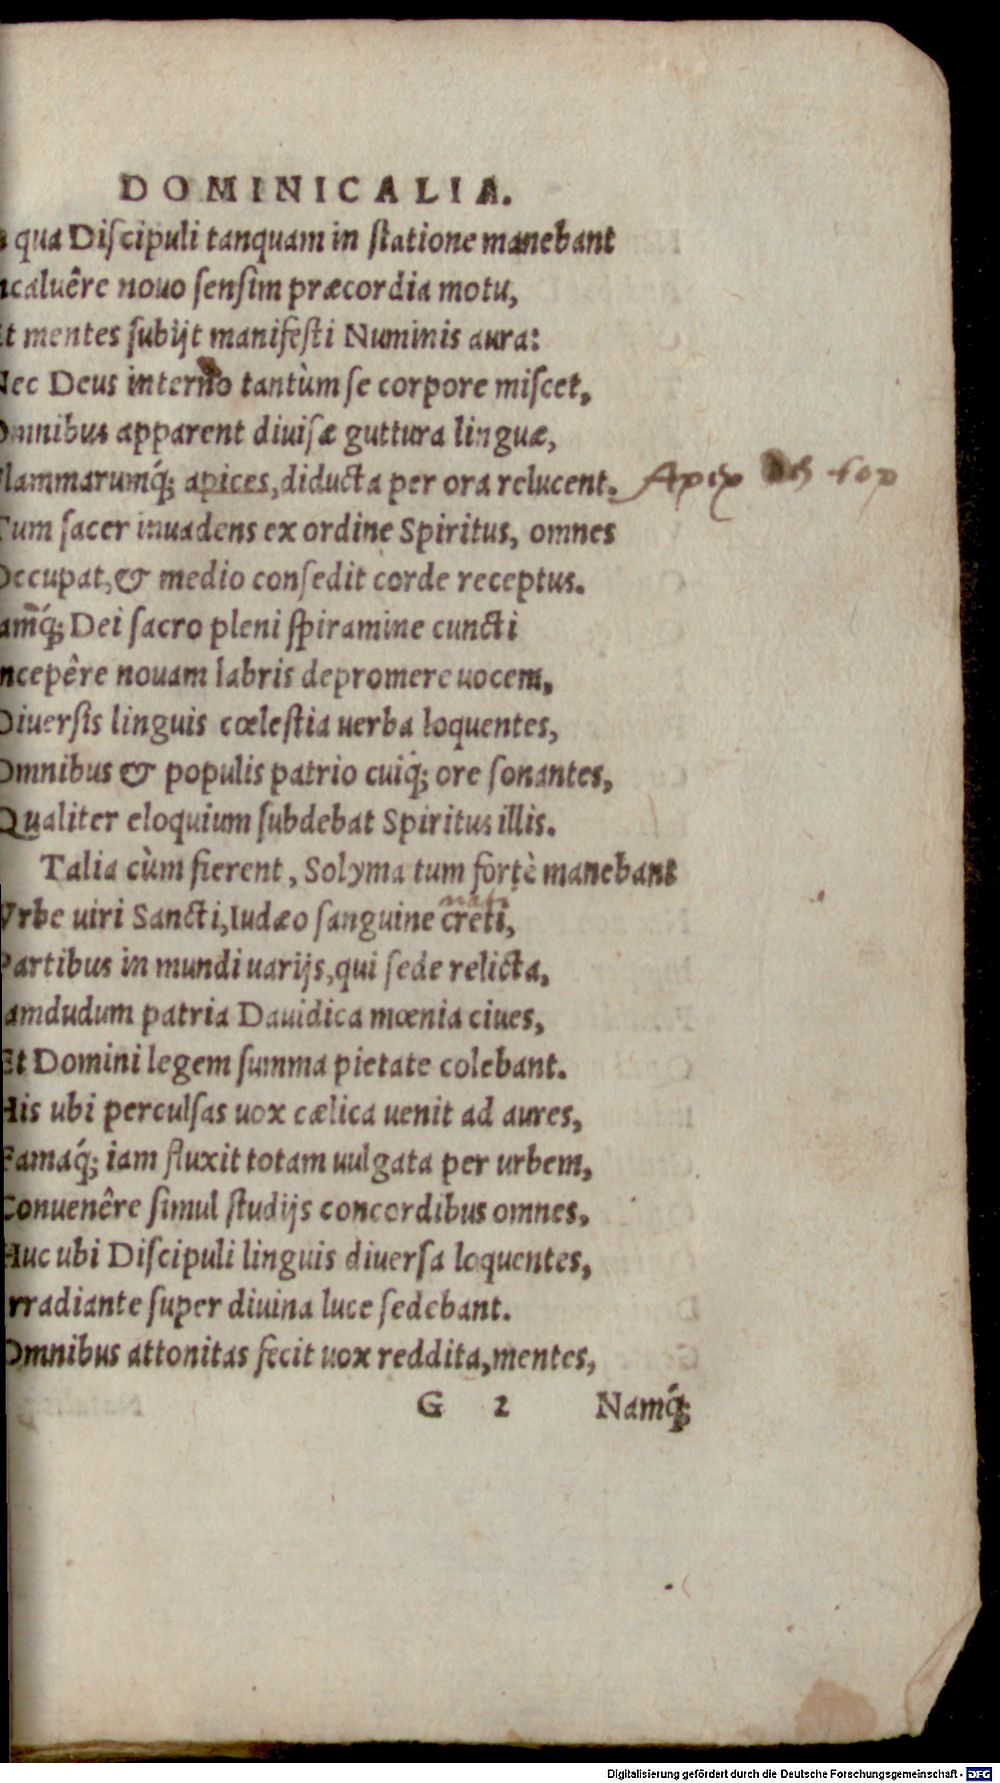 DOMINICALIA.
qua Diſcipuli tanquam in ſtatione manebant
ncaluêre nouo ſenſim præcordia motu,
Et mentes ſubijt manifeſti Numinis aura:
Nec Deus interno tantùm ſe corpore miſcet,
Omnibus apparent diuiſæ guttura linguæ,
Flammarumq́; apices, diducta per ora relucent. Apix top
Tum ſacer inuadens ex ordine Spiritus, omnes
Occupat, & medio conſedit corde receptus.
amq́; Dei ſacro pleni ſpiramine cuncti
ncepêre nouam labris depromere uocem,
Diuerſis linguis cœleſtia uerba loquentes,
Omnibus & populis patrio cuiq́; ore ſonantes,
Qualiter eloquium ſubdebat Spiritus illis.
Talia cùm fierent, Solyma tum fortè manebant
nati
Vrbe uiri Sancti, Iudæo ſanguine creti,
Partibus in mundi uarijs, qui ſede relicta,
amdudum patria Dauidica mœnia ciues,
Et Domini legem ſumma pietate colebant.
His ubi perculſas uox cælica uenit ad aures,
Famaq́; iam fluxit totam uulgata per urbem,
Conuenêre ſimul ſtudijs concordibus omnes,
Huc ubi Diſcipuli linguis diuerſa loquentes,
rradiante ſuper diuina luce ſedebant.
Omnibus attonitas fecit uox reddita, mentes,
G 2 Namq́;
Digitalisierung gefördert durch die Deutsche Forschungsgemeinschaft - DFG